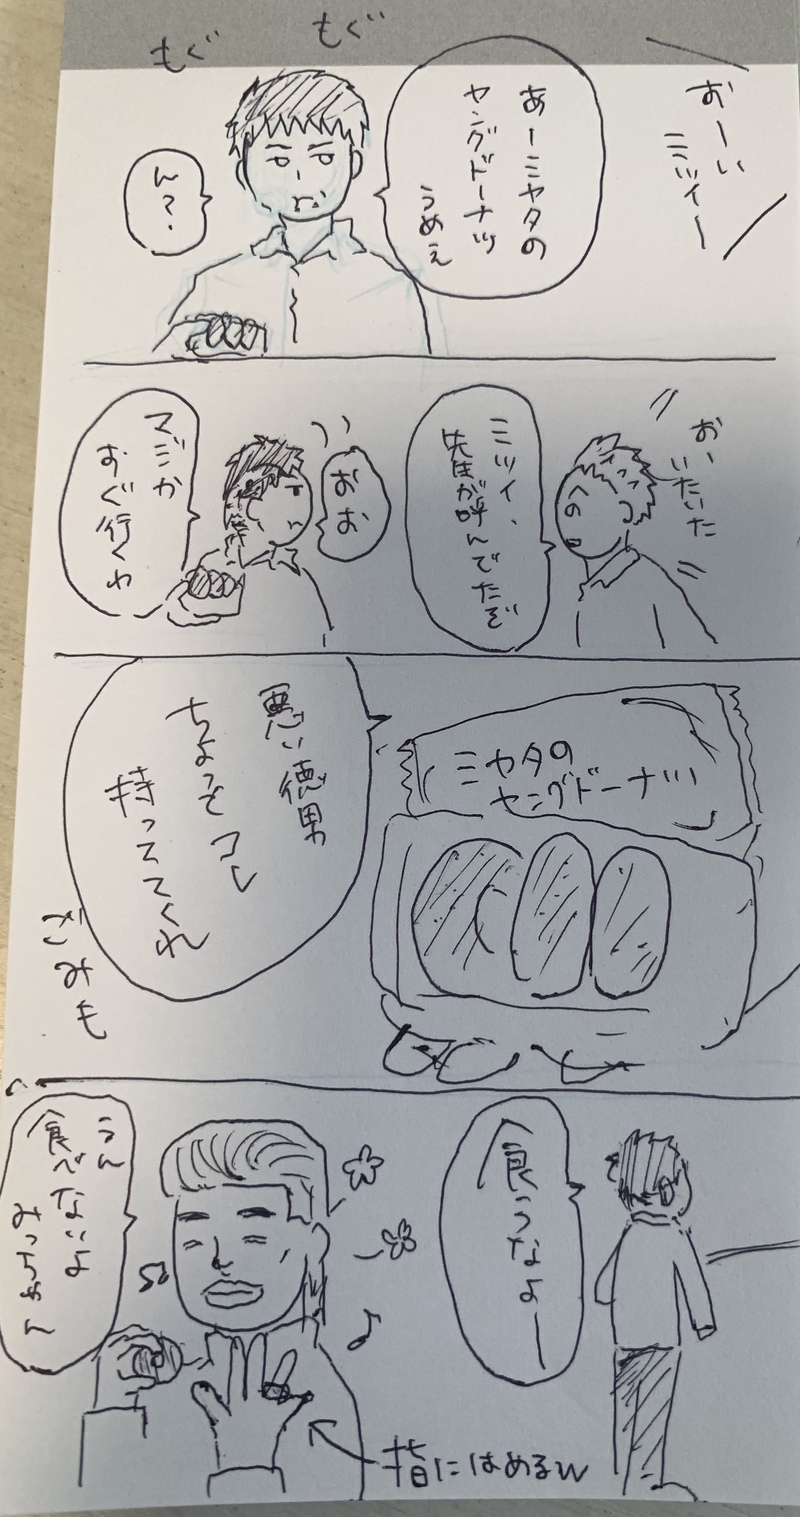 おーい
ミツイー
あーミヤタの
ヤングドーナツ
うめぇ
もぐ
もぐ
ん?
お、
いたいた
ミツイ、
先生が呼んでたぞ
おお
マジか
すぐ行くわ
ミヤタの
ヤングドーナツ
悪い徳男
ちょっとコレ
持っててくれ
ごみも
食うなよー
うん
食べないよ
みっちゃん
指にはめるw